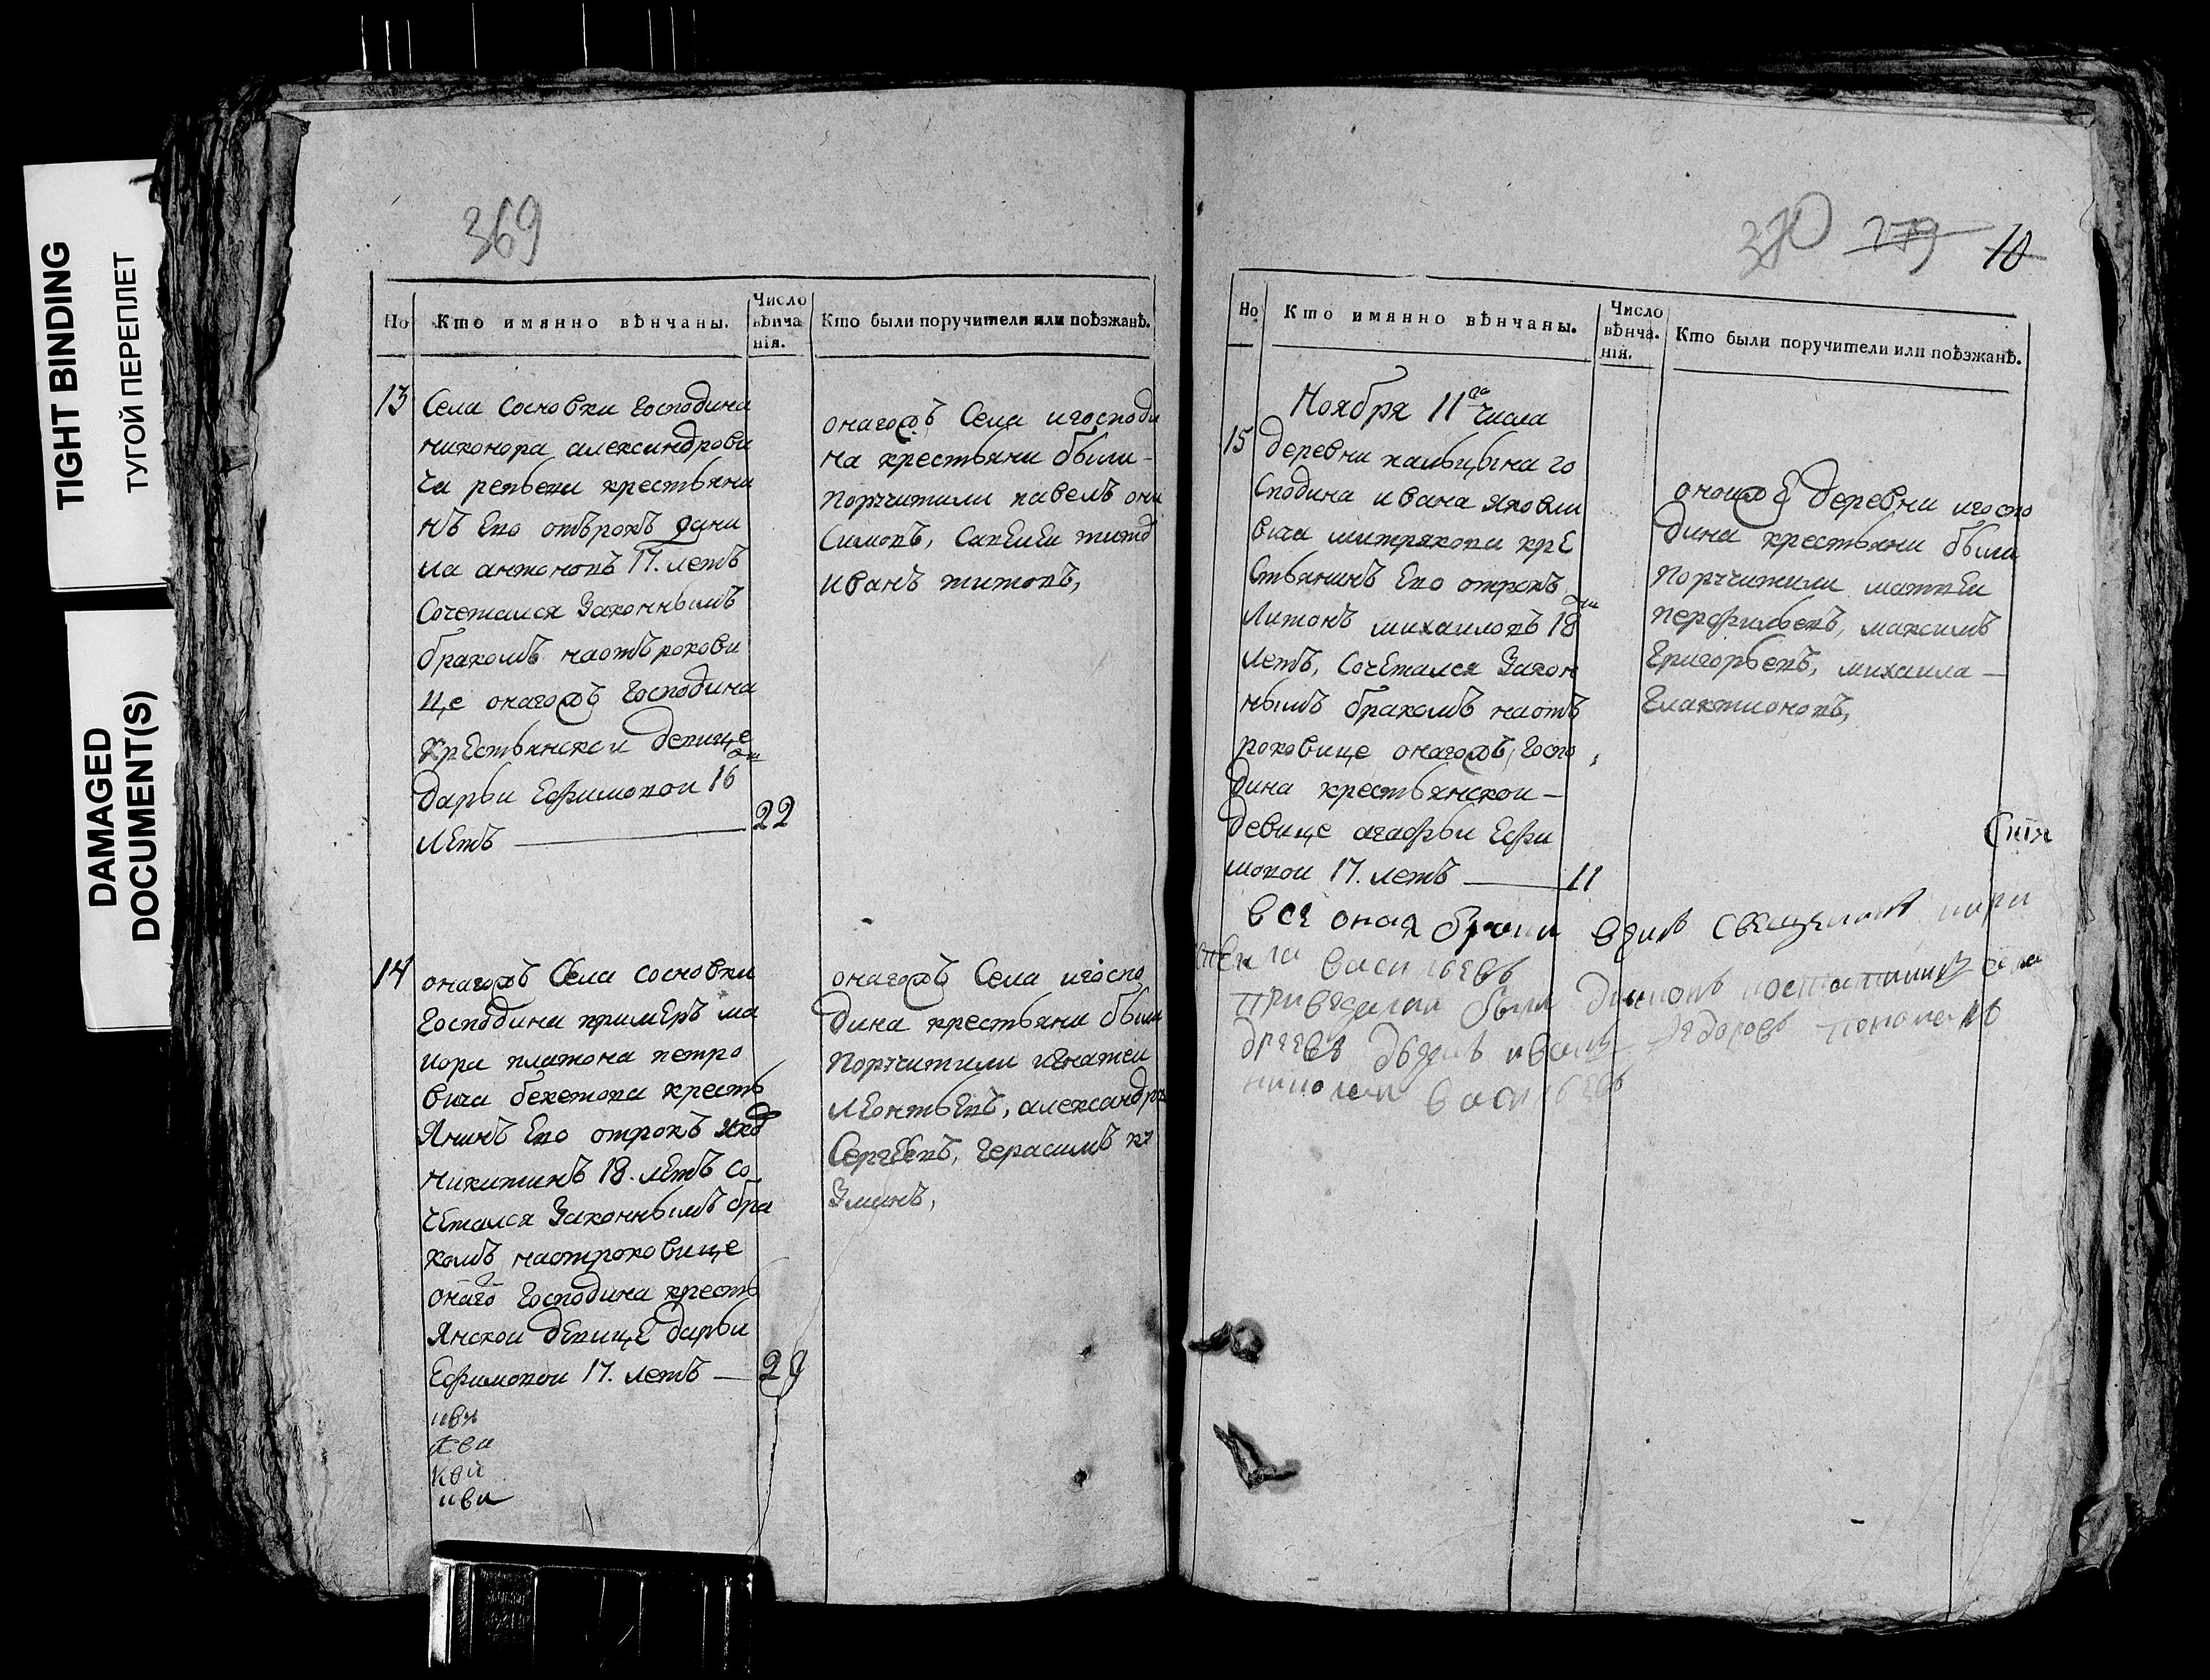 TIGHT BINDING
ТУГОЙ ПЕРЕПЛЕТ
DAMAGED
DOCUMENT(S)
369
Но
Кто имянно вѣнчаны.
Число
вѣнча
нія.
Кто были поручители или поѣзжанѣ.
13
Села Сосновки Господина
никонора александрови
ча репьева крестьяни
нъ Ево отърокъ дани
ла антоновъ 17. летъ
Сочетался Законнымъ
бракомъ наотърокови
це онагожъ Господина
крЕстьянской девице
дарьи Ефимовой 16ти
лЕтъ
22
онагожъ Села игосподи
на крестьяни были
поручители павелъ они
Симовъ,
иванъ титовъ,
14
онагожъ Села сосновки
Господина примЕръ ма
иора платона петро
вича бекетова кресть
янинъ Ево отрокъ
никитинъ 18. лЕтъ со
чЕтался Законнымъ бра
комъ наотроковице
онаго Господина кресть
янской дЕвицЕ дарьи
Ефимовой 17. летъ
29
онагожъ Села игоспо
дина крестьяни были
поручители игнатеи
лЕонтьЕвъ, александръ
СергЕЕвъ, герасимъ ку
Зминъ,
370 279 10
Но
Кто имянно вѣнчаны.
Число
вѣнча.
нія.
Кто были поручители или поѣзжанѣ.
Ноября 11го числа
15
деревни го
Сподина ивана яковли
вича митрякова крЕ
Стьянинъ Ево отрокъ
Литонъ михаиловъ 18ти
летъ, СочЕтался Закон
нымъ бракомъ наотъ
роковице онагожъ, Госпо
дина крестьянской
девице агафьи Ефи
мовой 17. летъ
11
онойжЕ деревни игоспо
дина крестьяни были
поручители матвеи
перфильевъ, максимъ
Григорьевъ, михаила
Глактионовъ,
всЕ оная браки
васильевъ
были
иванъ пономарь
николаи васильевъ